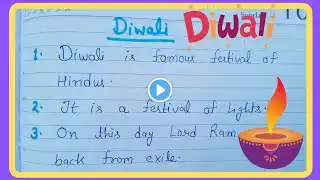 Diwali DiWali
1. Diwali is famous festival of
Hindus.
2. It is a festival of lights.
3. On this day Lord Ram
back from exile.